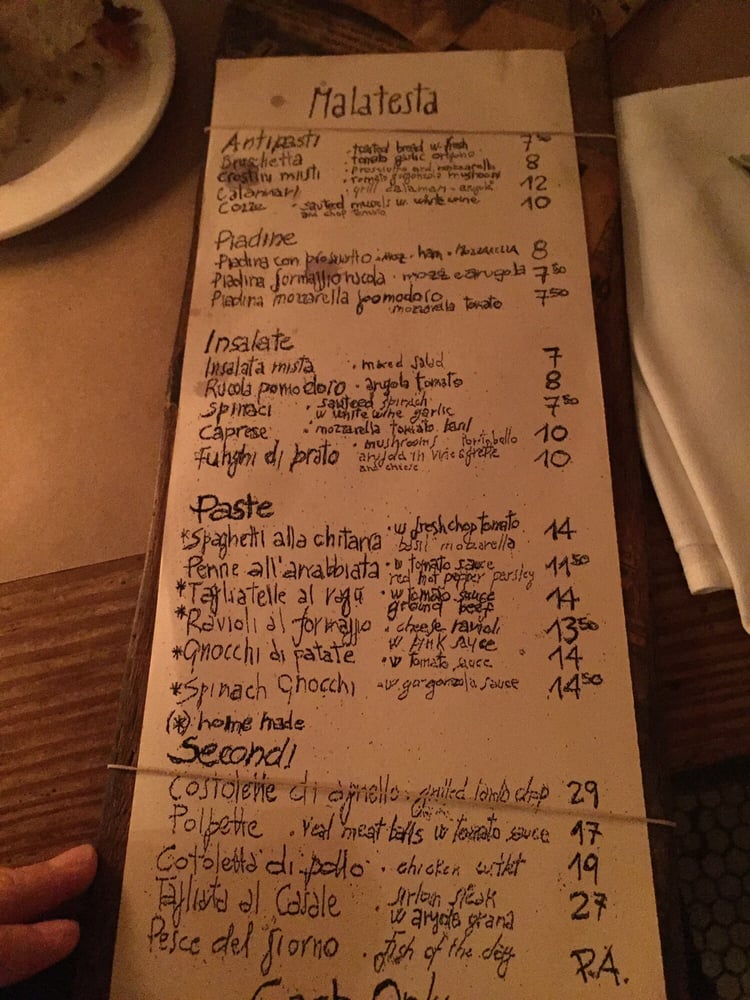 Malatesta
Antipasti
Bruschetta · toasted bread w. fresh 7⁵⁰
tomato garlic
Crostini misti · prosciutto and mozzarella 8
· tomato gorgonzola mushroom
Calamari · grill calamari - 12
Cozze · sauteed mussels w. white wine 10
and chop tomato
Piadine
Piadina con prosciutto · ham · mozzarella 8
Piadina formaggio rucola · mozz e arugola 7⁵⁰
Piadina mozzarella pomodoro 7⁵⁰
mozzarella tomato
Insalate
Insalata mista · mixed salad 7
Rucola pomodoro · arugola tomato 8
Spinaci · sauteed spinach 7⁵⁰
w white wine garlic
Caprese · mozzarella tomato basil 10
Funghi di prato · mushrooms portobello 10
and cheese
Paste
*Spaghetti alla chitarra · w fresh chop tomato 14
basil mozzarella
Penne all'arrabbiata · w tomato sauce 11⁵⁰
red hot pepper parsley
*Tagliatelle al ragu · w tomato sauce 14
ground beef
*Ravioli al formaggio · cheese ravioli 13⁵⁰
w pink sauce
*Gnocchi di patate · w tomato sauce 14
*Spinach Gnocchi · w gorgonzola sauce 14⁵⁰
(*) home made
Secondi
Costolette di agnello · grilled lamb chop 29
Polpette · veal meat balls w tomato sauce 17
Cotoletta di pollo · chicken cutlet 19
Tagliata al Casale · sirloin steak 27
w arugola grana
Pesce del giorno · fish of the day P.A.
Cash Only